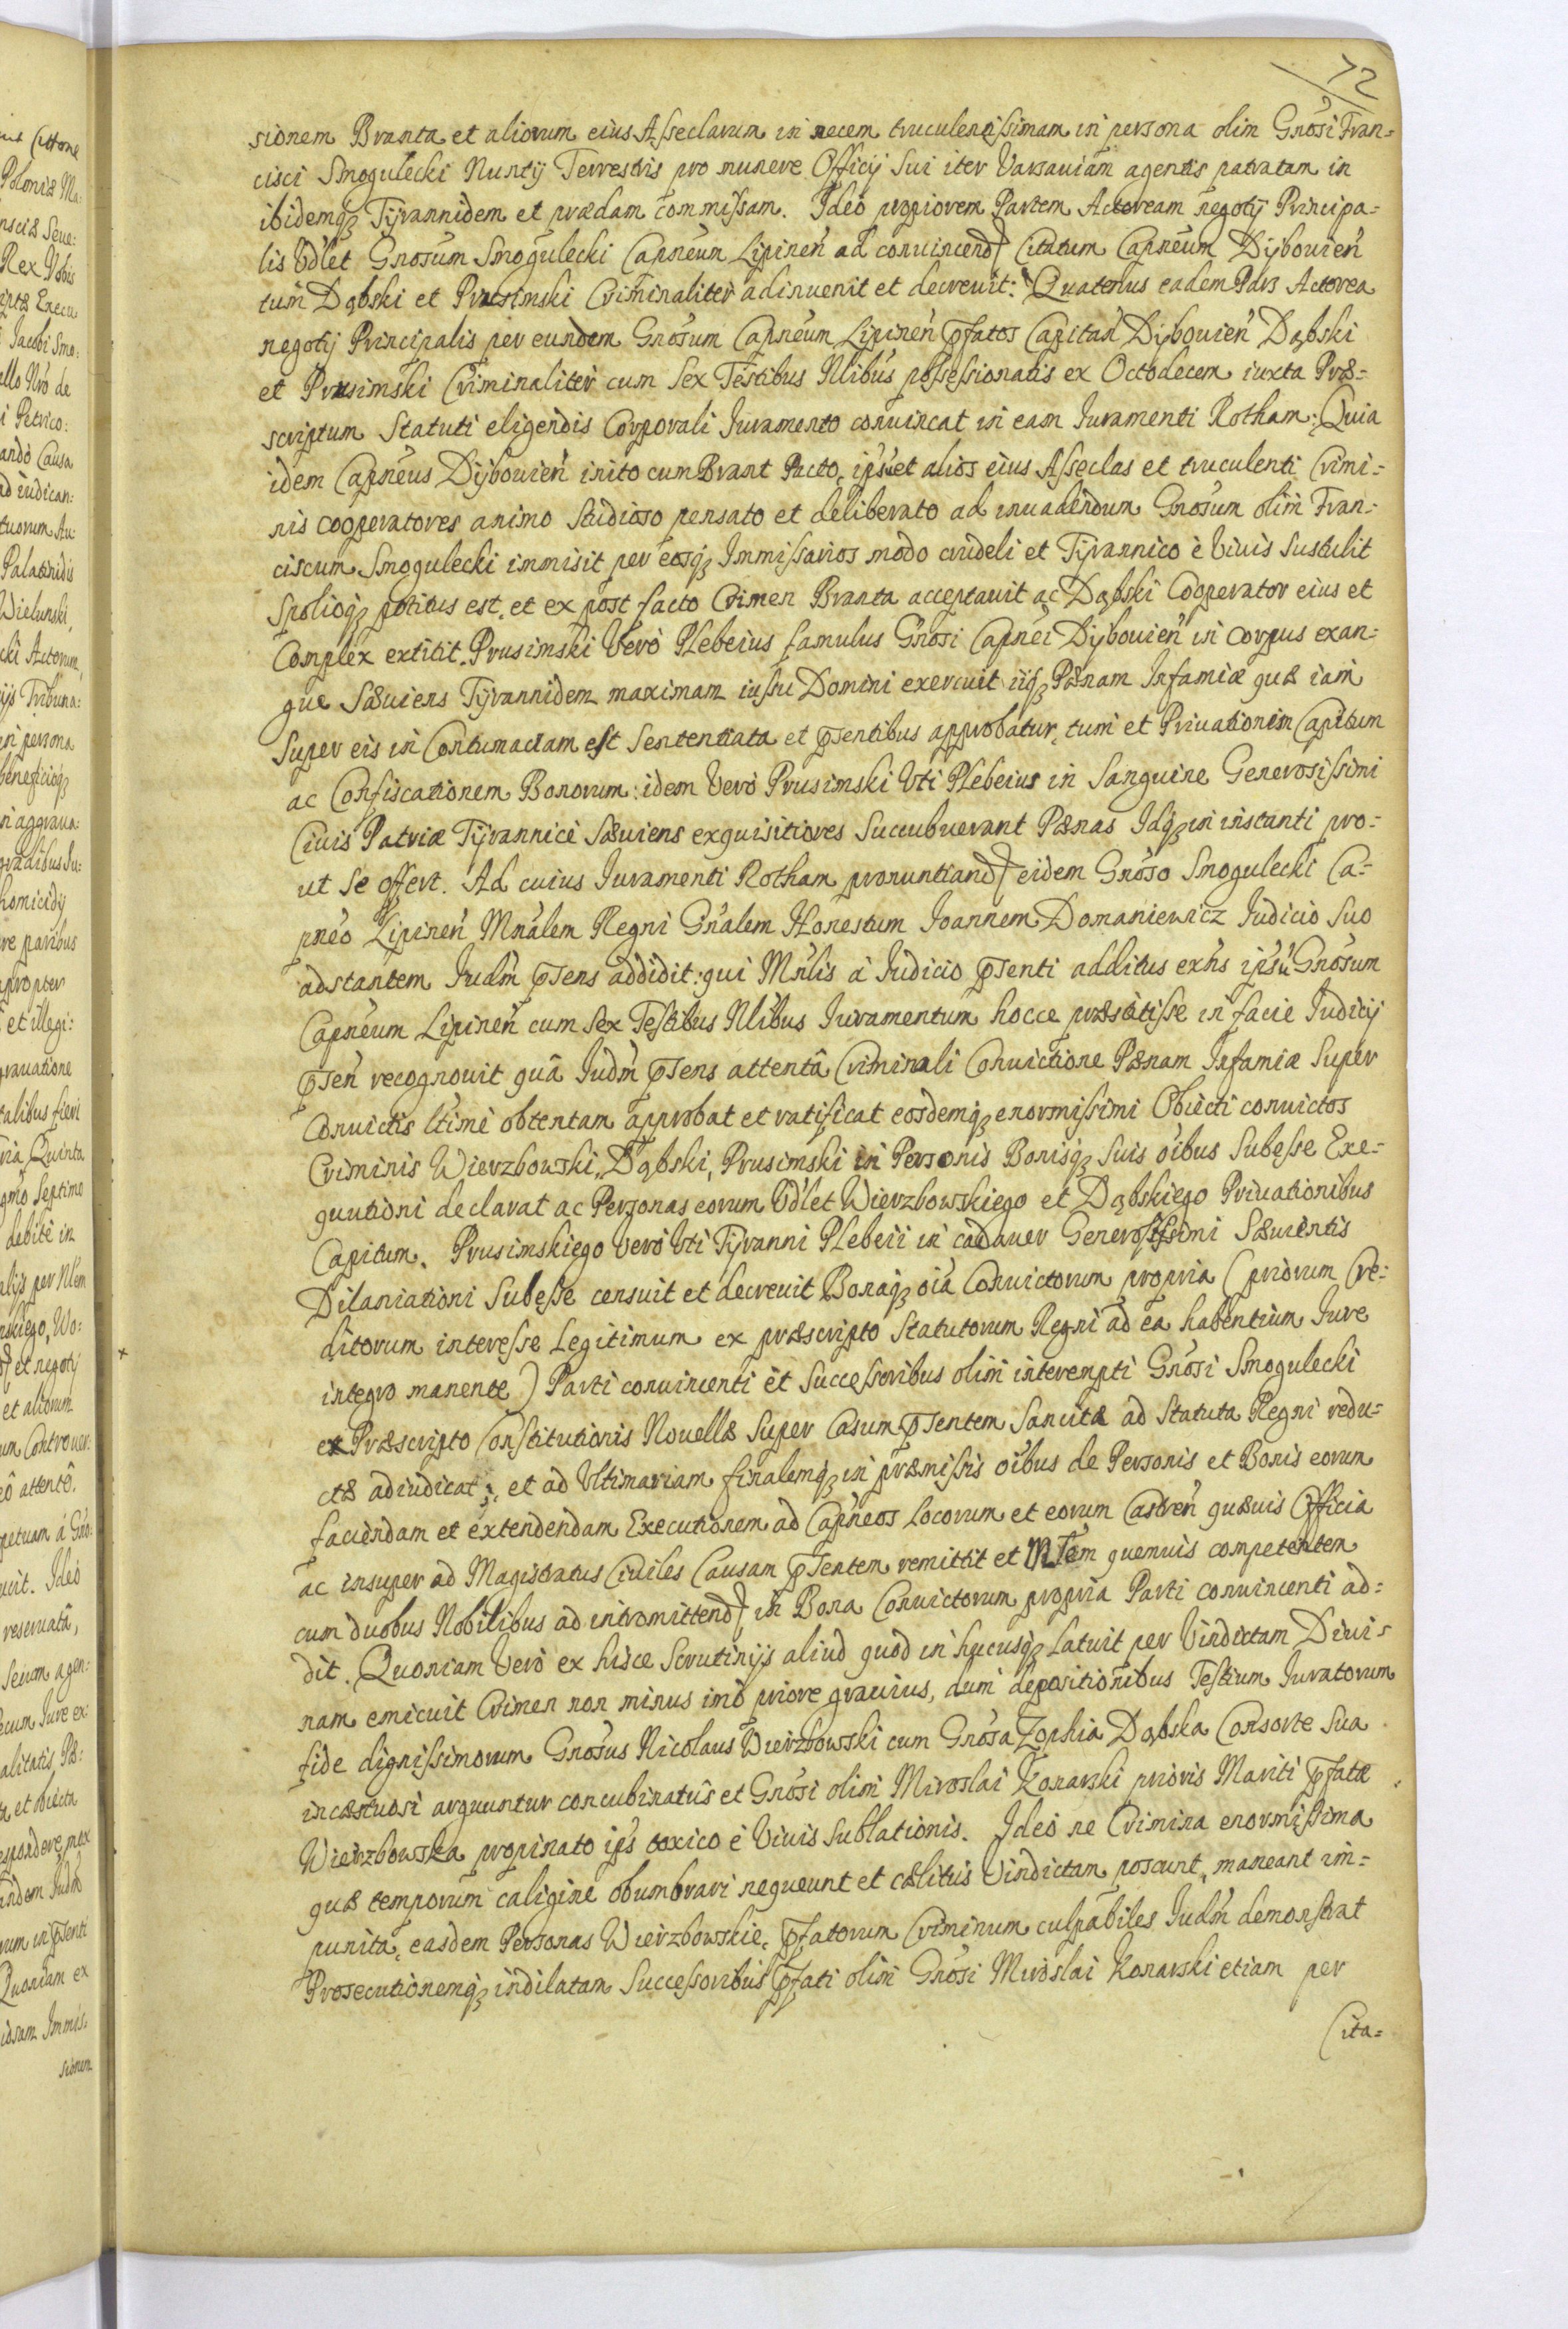 72
sionem Branta et aliorum eius Asseclarum in necem truculentissimam in persona olim Gnosi Fran=
cisci Smogulecki Nuntij Terrestris pro munere Officij sui iter Varsauiam agentis patratam in
ibidemq3 Tijrannidem et prædam commissam. Ideo propiorem Partem Actoream negotij Principa=
lis Vdlet Gnosum Smogulecki Capneum Lipinen ad conuincend Citatum Capneum Dijbouien
tum Dąbski et Prusimski Criminaliter adinuenit et decreuit: Quatenus eadem Pars Actorea
negotij Principalis per eundem Gnosum Capneum Lipinen pfatos Capitan Dijbouien Dąbski
et Prusimski Criminaliter cum Sex Testibus Nlibus possessionatis ex Octodecem iuxta Præ=
scriptum Statuti eligendis Corporali Iuramento conuincat in eam Iuramenti Rotham: Quia
idem Capneus Dijbouien inito cum Brant Pacto, ipsu et alios eius Asseclas et truculenti Crimi=
nis cooperatores animo studioso pensato et deliberato ad inuadendum Gnosum olim Fran=
ciscum Smogulecki immisit per eosq3 Immissarios modo crudeli et Tijrannico è Viuis sustulit
Spolioq3 potitus est, et ex post facto Crimen Branta acceptauit ac Dąbski Cooperator eius et
Complex extitit. Prusimski Verò Plebeius famulus Gnosi Capnei Dijbouien in corpus exan=
gue Sæuiens Tijrannidem maximam iussu Domini exercuit iiq3 Pænam Infamiæ quæ iam
super eis in Contumaciam est Sententiata et psentibus approbatur, tum et Priuationem Capitum
ac Confiscationem Bonorum: idem Verò Prusimski Vti Plebeius in Sanguine Generosissimi
Ciuis Patriæ Tijrannicè Sæuiens exquisitiores Succubuerant Pænas Idq3 in instanti pro=
ut se offert. Ad cuius Iuramenti Rotham pronuntiand eidem Gnoso Smogulecki Ca=
pneo Lipinen Mnalem Regni Gnalem Honestum Ioannem Domaniewicz Iudicio suo
adstantem Iudm psens addidit: qui Mnlis à Iudicio psenti additus exhs ipsu Gnosum
Capneum Lipinen cum Sex Testibus Nlibus Iuramentum hocce præstitisse in facie Iudicij
psen recognouit quâ Iudm psens attentâ Criminali Conuictione Pænam Infamiæ super
Conuictis ltime obtentam approbat et ratificat eosdemq3 enormissimi Obiecti conuictos
Criminis Wierzbowski, Dąbski, Prusimski in Personis Bonisq3 suis oibus subesse Exe=
quutioni declarat ac Personas eorum Vdlet Wierzbowskiego et Dąbskiego Priuationibus
Capitum. Prusimskiego verò Vti Tijranni Plebeii in cadauer Generosissimi Sæuientis
Dilaniationi Subesse censuit et decreuit Bonaq3 oia Conuictorum propria (priorum Cre=
ditorum interesse Legitimum ex præscripto Statutorum Regni ad ea habentium Iure
integro manente) Parti conuincenti et Successoribus olim interempti Gnosi Smogulecki
ex Præscripto Constitutionis Nouellæ super Casum psentem sancitæ ad Statuta Regni redu=
ctæ adiudicat; et ad Vltimariam finalemq3 in præmissis oibus de Personis et Bonis eorum
faciendam et extendendam Executionem ad Capneos Locorum et eorum Castren quæuis Officia
ac insuper ad Magistratus Ciuiles Causam psentem remittit et quemuis competentem
cum duobus Nobilibus ad intromittend in Bona Conuictorum propria Parti conuincenti ad=
dit. Quoniam Verò ex hisce Scrutinijs aliud quod in hucusq3 latuit per Vindictam Diui=
nam emicuit Crimen non minus imò priore grauius, dum depositionibus Testium Iuratorum
fide dignissimorum Gnosus Nicolaus Wierzbowski cum Gnosa Zophia Dąbska Consorte sua
incæstuosi arguuntur concubinatûs et Gnosi olim Miroslai Konarski prioris Mariti pfatæ
Wierzbowska propinato ips toxico è Viuis sublationis. Ideò ne Crimina enormissima
quæ temporum caligine obumbrari nequeunt et cælitùs Vindictam poscunt, maneant im=
punita, easdem Personas Wierzbowskie, pfatorum Criminum culpabiles Iudm demonstrat
Prosecutionemq3 indilatam Successoribus pfati olim Gnosi Miroslai Konarski etiam per
Cita=